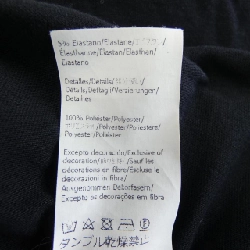 5% Elastan/Elastane/
Elasthanne/Elastan/Elasthen/
Elastano
Detalles/Details/
Détails/Dettagli/Verzierungen/
Detalhes
100% Poliester/Polyester/
Polyester/Poliestere/
Polyester/Poliéster
Excepto decoración/Exclusive of
decoration/ /Sauf les
décorations en fibre/Esclusi le
decorazioni in fibra/
Ausgenommen Dekorfasern/
Excepto as decorações em fibra/
タンブル乾燥禁止